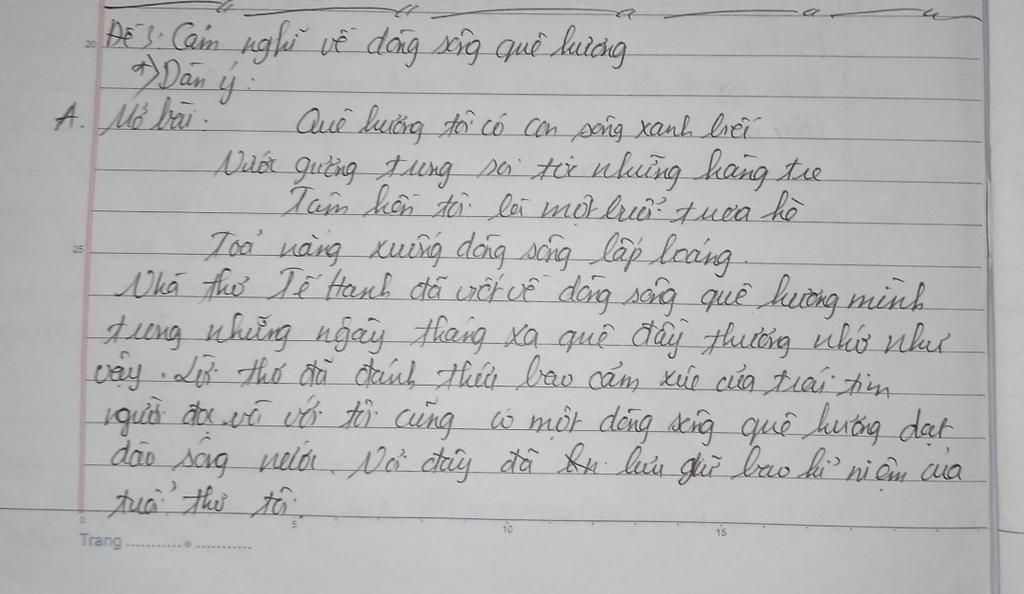 Đề 3: Cảm nghĩ về dòng sông quê hương
*) Dàn ý:
A. Mở bài. Quê hương tôi có con sông xanh biếc
Nước gương trong soi tóc những hàng tre
Tâm hồn tôi là một buổi trưa hè
Toả nắng xuống dòng sông lấp loáng.
Nhà thơ Tế Hanh đã viết về dòng sông quê hương mình
trong những ngày tháng xa quê đầy thương nhớ như
vậy. Lời thơ đã đánh thức bao cảm xúc của trái tim
người đọc và với tôi cũng có một dòng sông quê hương dạt
dào sóng nước. Nơi đây đã lưu giữ bao kỉ niệm của
tuổi thơ tôi.
20
25
0 5 10 15
Trang